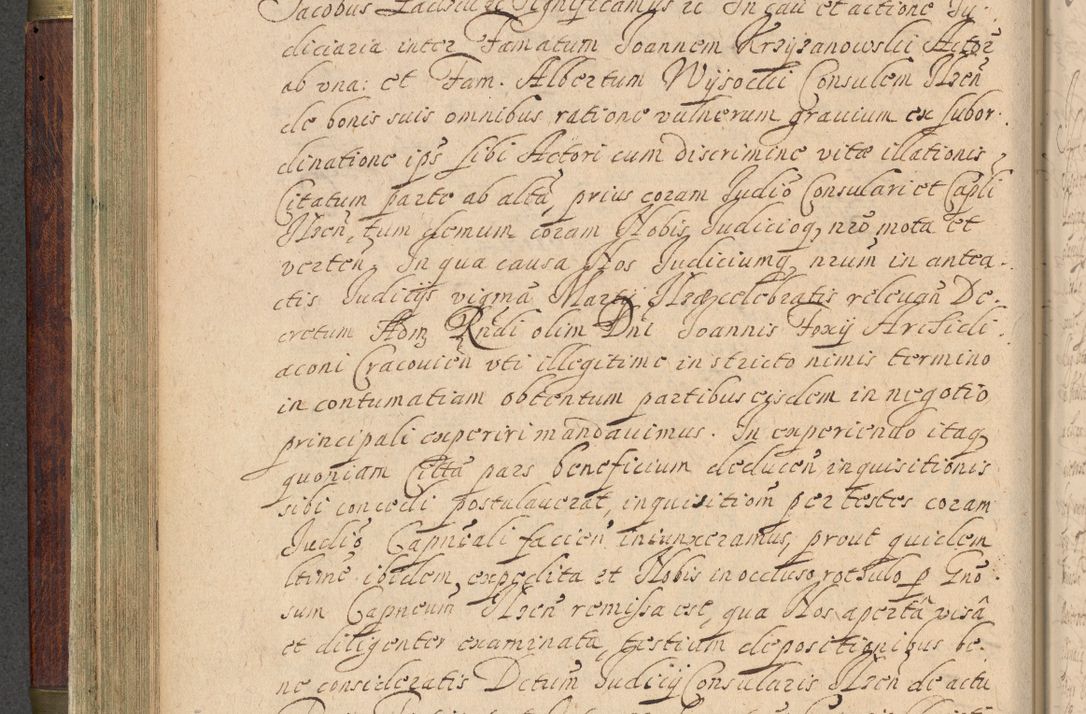 Jacobus Significamus &c In cau et actione Ju-
diciaria inter Famatum Joannem Krzyzanowski Actorẽ
ab vna: et Fam. Albertum Wysocki Consulem Ilzeñ
de bonis suis omnibus ratione vulnerum grauium ex subor-
dinatione ips̃ sibi Actori cum discrimine vitæ illationis
Citatum parte ab altã, prius coram Judiõ Consulari et Capli
Ilzeñ, tum demum coram Nobis Judicioq, nr̃o mota et
verteñ. In qua causa Nos Judiciumq, nr̃um in antea-
ctis Judicijs vigmã Martij celebratis releuañ De-
cretum Adm Rñdi olim Dñi Joannis Foxij Archidi-
aconi Cracouieñ vti illegitime in stricto nimis termino
in contumatiam obtentum partibus eisdem in negotio
principali experiri mãndauimus. In experiendo itaq
quoniam Citta pars beneficium deduceñ inquisitionis
sibi concedi postulauerat, inquisitiom̃ per testes coram
Judiõ Capnẽali facieñ iniunxeramus, prout quidem
ltime ibidem expedita et Nobis in occluso rothulo p Gnõ-
sum Capneum̃ Ilzeñ remissa est, qua Nos apertâ visâ
et diligenter examinata, testium depositionibus be-
ne consideratis Dctum Judicij Consularis Ilzeñ de actu